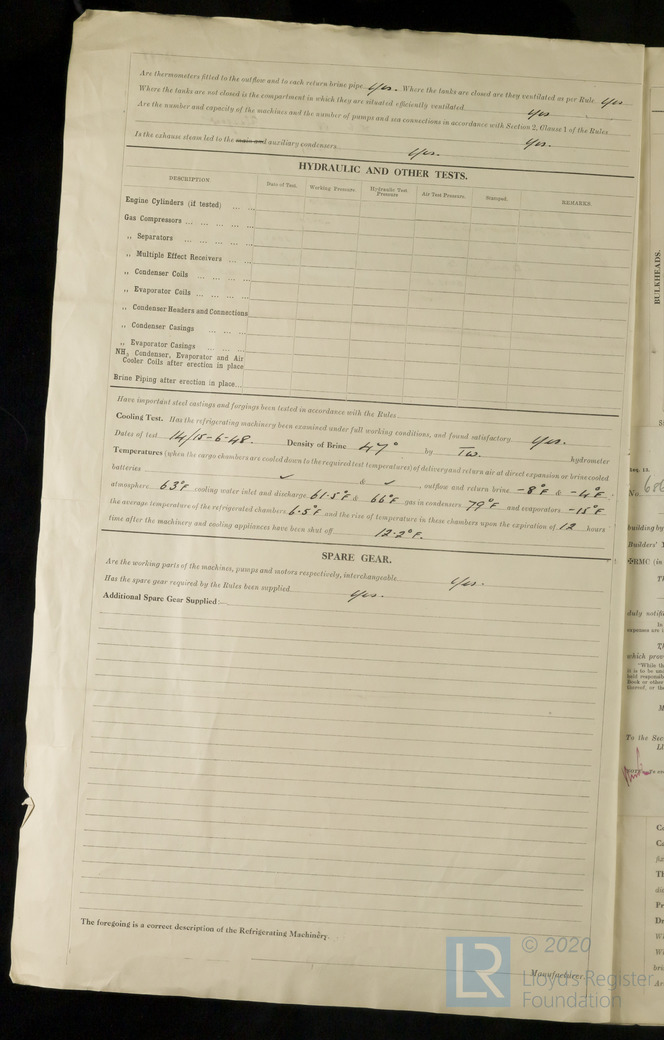 Are thermometers fitted to the outflow and to each return brine pipe Yes. Where the tanks are closed are they ventilated as per Rule Yes
Where the tanks are not closed is the compartment in which they are situated efficiently ventilated Yes
Are the number and capacity of the machines and the number of pumps and sea connections in accordance with Section 2, Clause 1 of the Rules Yes.
Is the exhaust steam led to the main and auxiliary condensers Yes.
HYDRAULIC AND OTHER TESTS.
DESCRIPTION Date of Test. Working Pressure. Hydraulic Test Pressure Air Test Pressure. Stamped. REMARKS.
Engine Cylinders (if tested) ... ...
Gas Compressors ... ... ... ... ...
„ Separators ... ... ... ...
„ Multiple Effect Receivers ... ...
„ Condenser Coils ... ... ...
„ Evaporator Coils ... ... ...
„ Condenser Headers and Connections
„ Condenser Casings ... ... ...
„ Evaporator Casings ... ... ...
NH3 Condenser, Evaporator and Air
Cooler Coils after erection in place
Brine Piping after erection in place...
Have important steel castings and forgings been tested in accordance with the Rules
Cooling Test. Has the refrigerating machinery been examined under full working conditions, and found satisfactory Yes.
Dates of test 14/15-6-48. Density of Brine 47° by Tw. hydrometer
Temperatures (when the cargo chambers are cooled down to the required test temperatures) of delivery and return air at direct expansion or brine cooled
batteries ✓ & ✓, outflow and return brine -8°F & -4°F.
atmosphere 63°F cooling water inlet and discharge 61.5°F & 66°F gas in condensers 79°F and evaporators -15°F
the average temperature of the refrigerated chambers 6.5°F and the rise of temperature in these chambers upon the expiration of 12 hours
time after the machinery and cooling appliances have been shut off 12.2°F.
SPARE GEAR.
Are the working parts of the machines, pumps and motors respectively, interchangeable Yes.
Has the spare gear required by the Rules been supplied Yes.
Additional Spare Gear Supplied:—
The foregoing is a correct description of the Refrigerating Machinery.
Manufacturer.
BULKHEADS.
No. 686
building by
Builders'
✠RMC (in
duly notifi
expenses are i
which prov
"While th
Book or other
thereof, or the
To the Sec
LR
© 2020
Lloyd's Register
Foundation